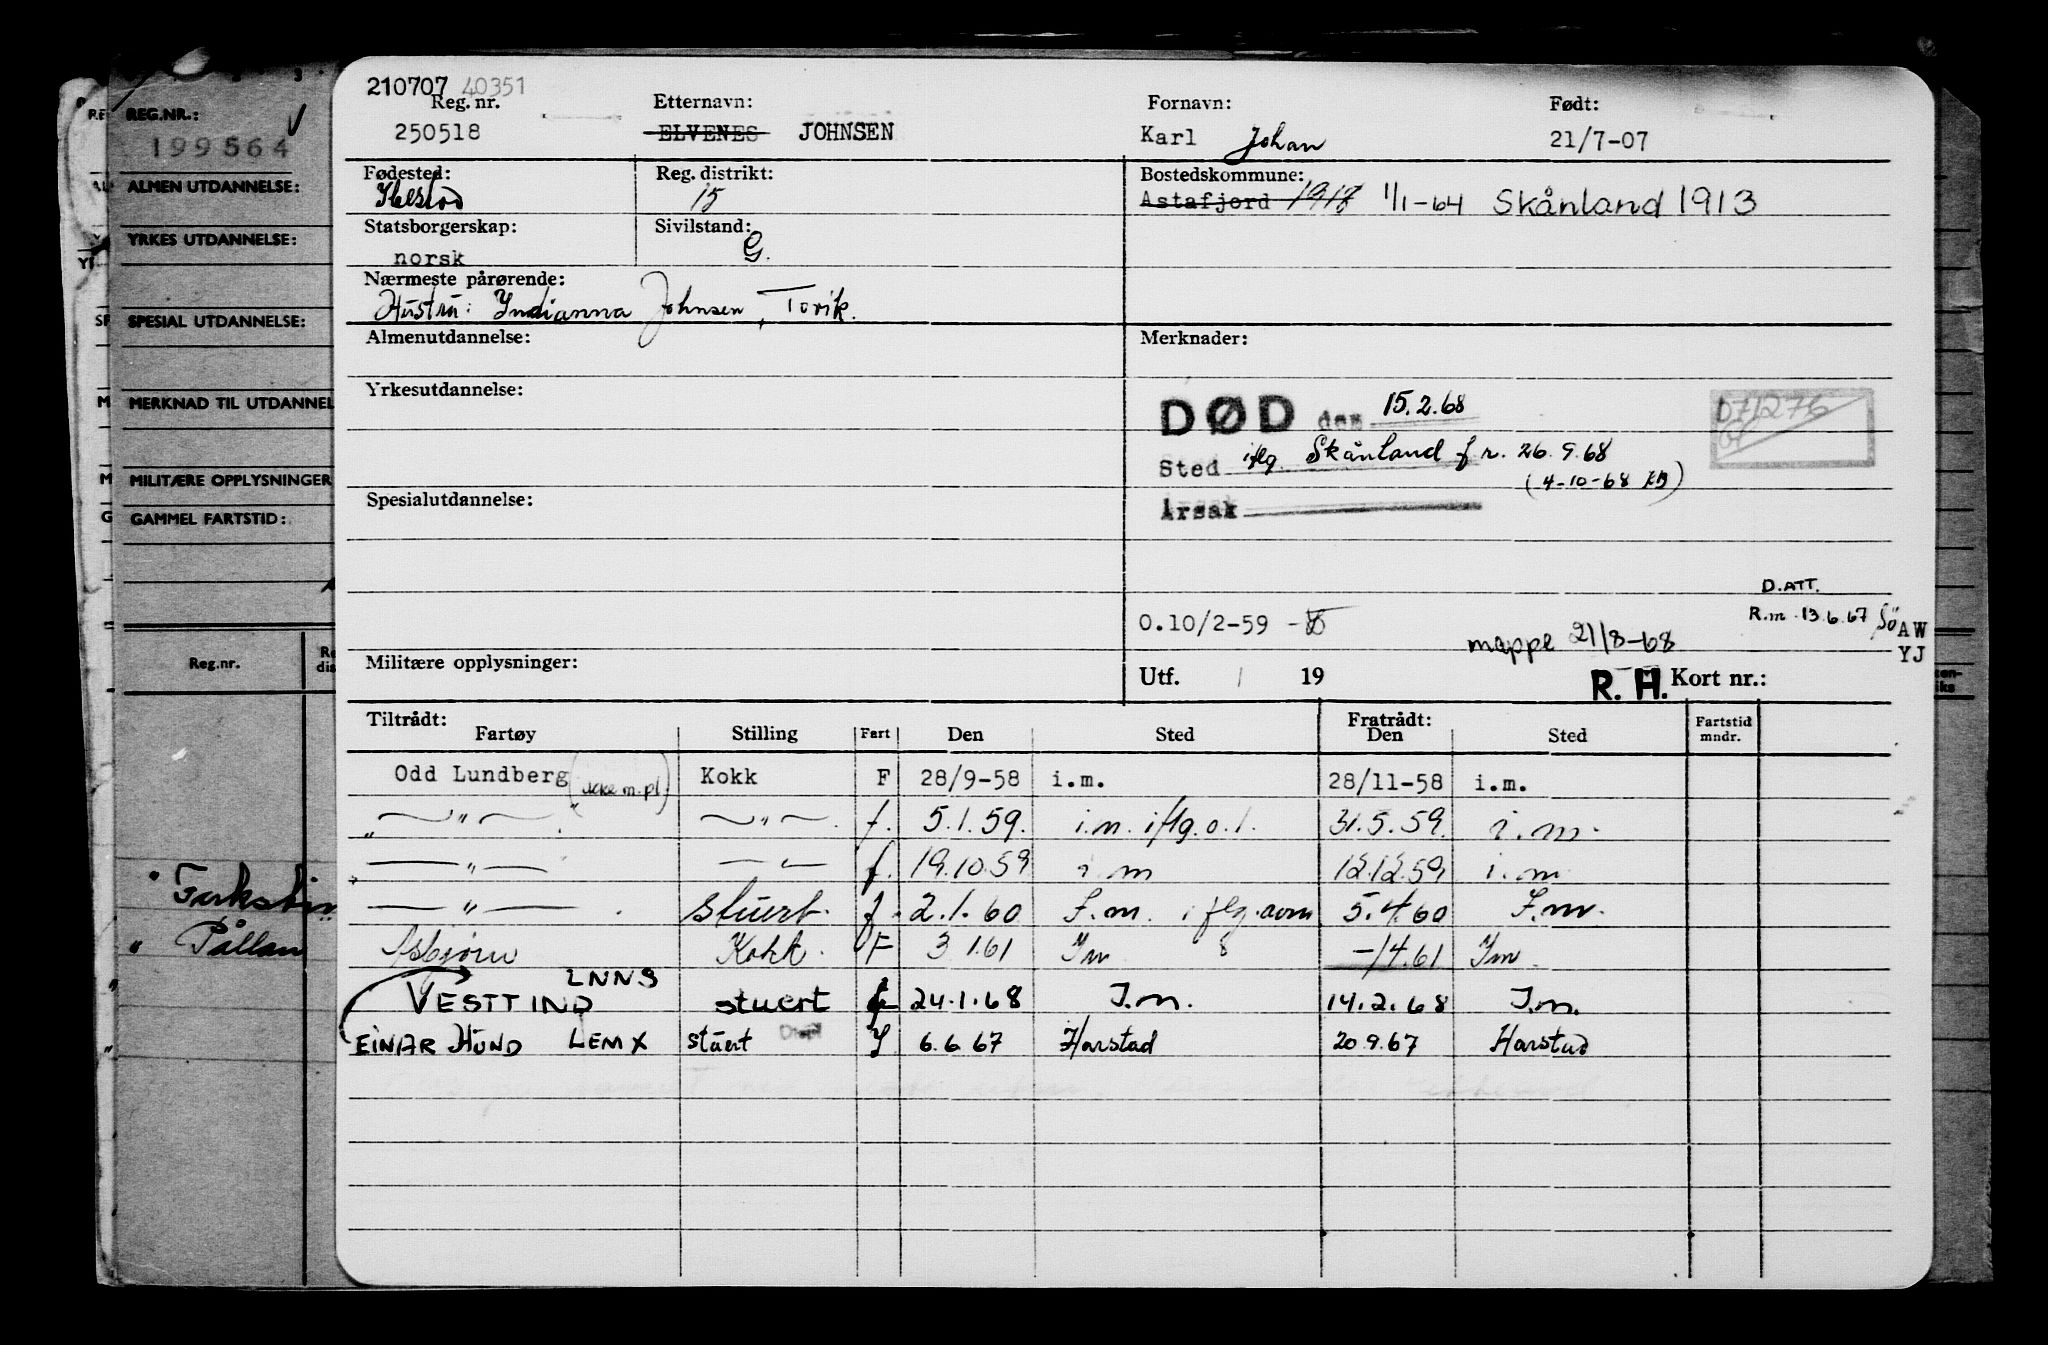 210707 40351
Reg. nr. Etternavn: Fornavn: Født:
250518 ELVENES JOHNSEN Karl Johan 21/7-07
Fødested: Reg. distrikt: Bostedskommune:
Ibestad 15 Astafjord 1918 1/1-64 Skånland 1913
Statsborgerskap: Sivilstand:
norsk G.
Nærmeste pårørende:
Hustru: Indianna Johnsen, Tovik.
Almenutdannelse: Merknader:
Yrkesutdannelse:
DØD den 15.2.68
D71276
Sted iflg. Skånland f r. 26.9.68
(4-10-68 )
Årsak
Spesialutdannelse:
D.ATT.
R.m. 13.6.67 Sö
O.10/2-59
mappe 21/8-68
AW
YJ
Militære opplysninger: Utf. 19 R. H. Kort nr.:
Tiltrådt: Fratrådt:
Fartøy Stilling Fart Den Sted Den Sted Fartstid mndr.
Odd Lundberg (ikke m.pl) Kokk F 28/9-58 i.m. 28/11-58 i.m.
—"— —"— f. 5.1.59. i.m. iflg.o.l. 31.5.59. i.m.
—"— —"— f. 19.10.59 i.m 12.12.59 i.m
—"— stuert. f. 2.1.60 I.m. iflg. 5.4.60 I.m.
Asbjørn Kokk. F 3 1.61 Im 8 -/4.61 Im.
VESTTIND LNNS stuert f 24.1.68 I.m. 14.2.68 I.m.
EINAR HUND LEMX stuert Y 6.6.67 Harstad 20.9.67 Harstad
REG.NR.:
199564
ALMEN UTDANNELSE:
YRKES UTDANNELSE:
SPESIAL UTDANNELSE:
MERKNAD TIL UTDANNEL
MILITÆRE OPPLYSNINGER
GAMMEL FARTSTID:
Reg.nr.
" Pållan